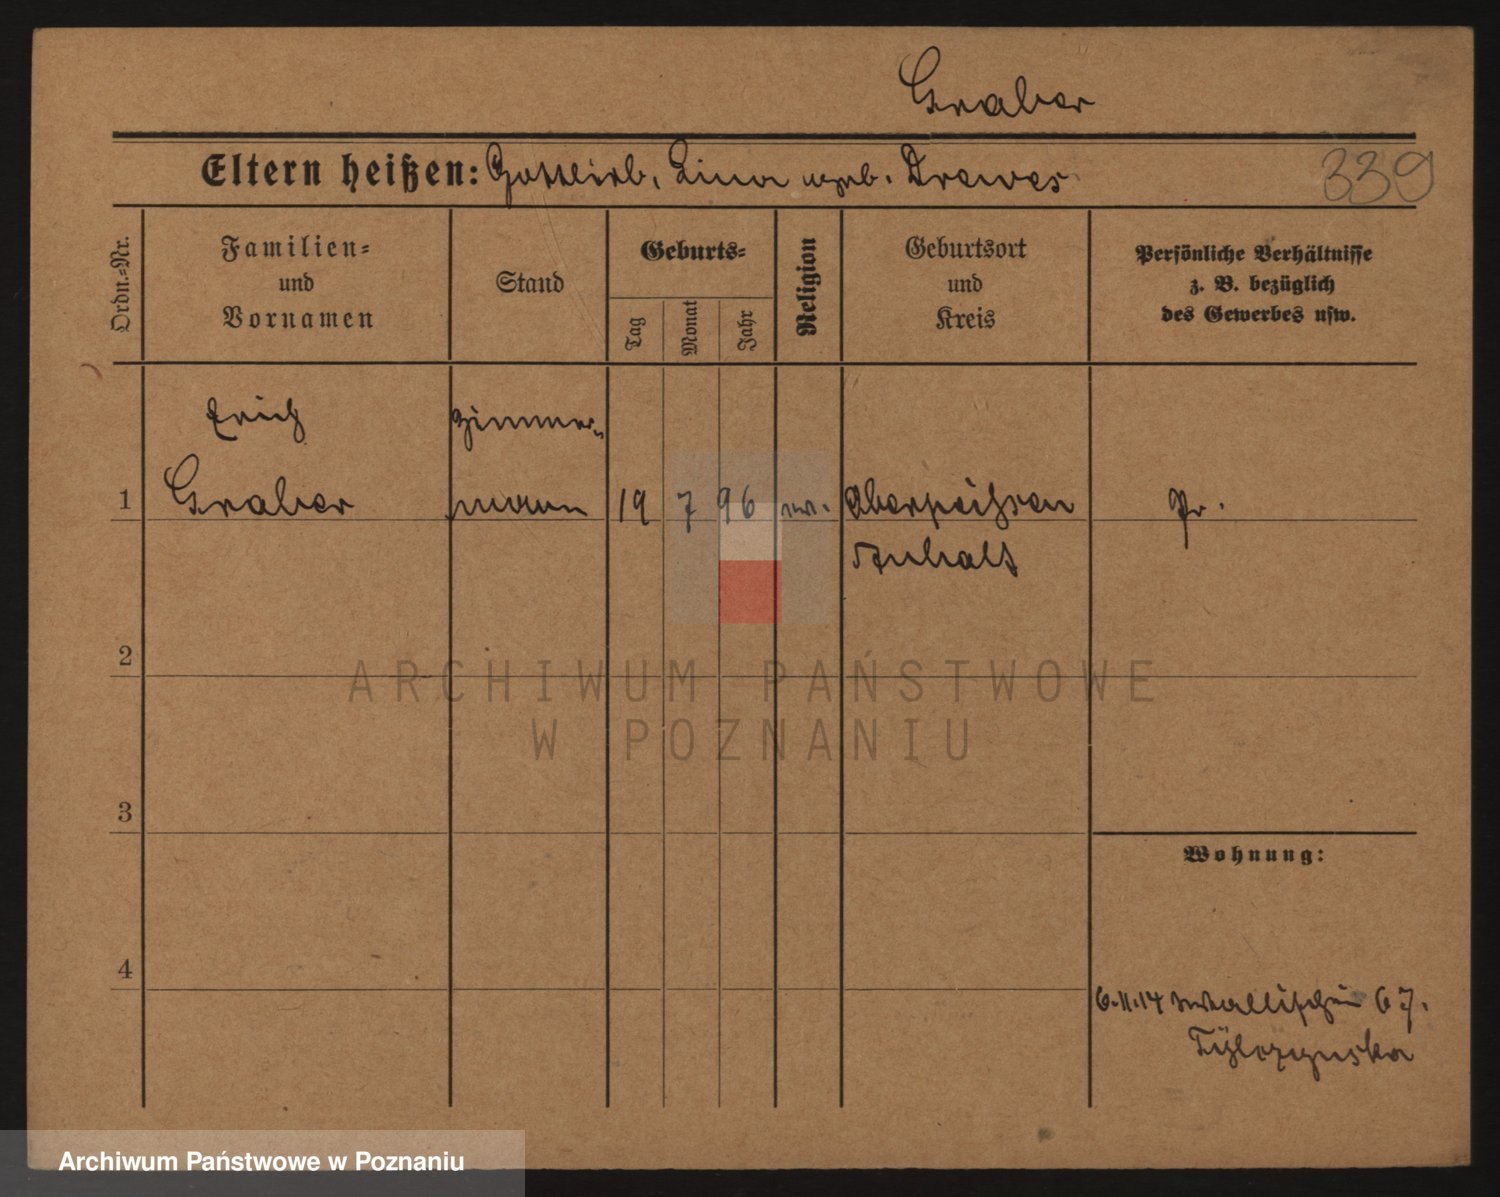 Graber
Eltern heißen: Gottlieb, Lina geb. Drewes
339
Ordn.-Nr.
Familien-
und
Vornamen
Stand
Geburts-
Tag
Monat
Jahr
Religion
Geburtsort
und
Kreis
Persönliche Verhältnisse
z. B. bezüglich
des Gewerbes usw.
Erich Zimmer-
1 Graber mann 19 7 96 ev. Pr.
Anhalt
2
ARCHIWUM PAŃSTWOWE
W POZNANIU
3
Wohnung:
4
6.11.14 Wallischei 67.
Archiwum Państwowe w Poznaniu